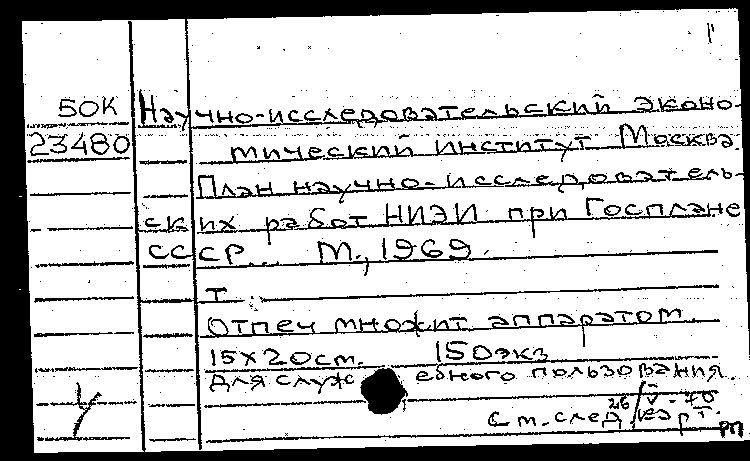 50К Научно-исследовательский эконо-
23480 мический институт Москва.
План научно-исследователь-
ских работ НИЭИ при Госплане
СССР... М., 1969.
т
Отпеч множит аппаратом.
15х20см. 150экз
Для служебного пользования.
У
26/V-70
См. след. карт.
РП